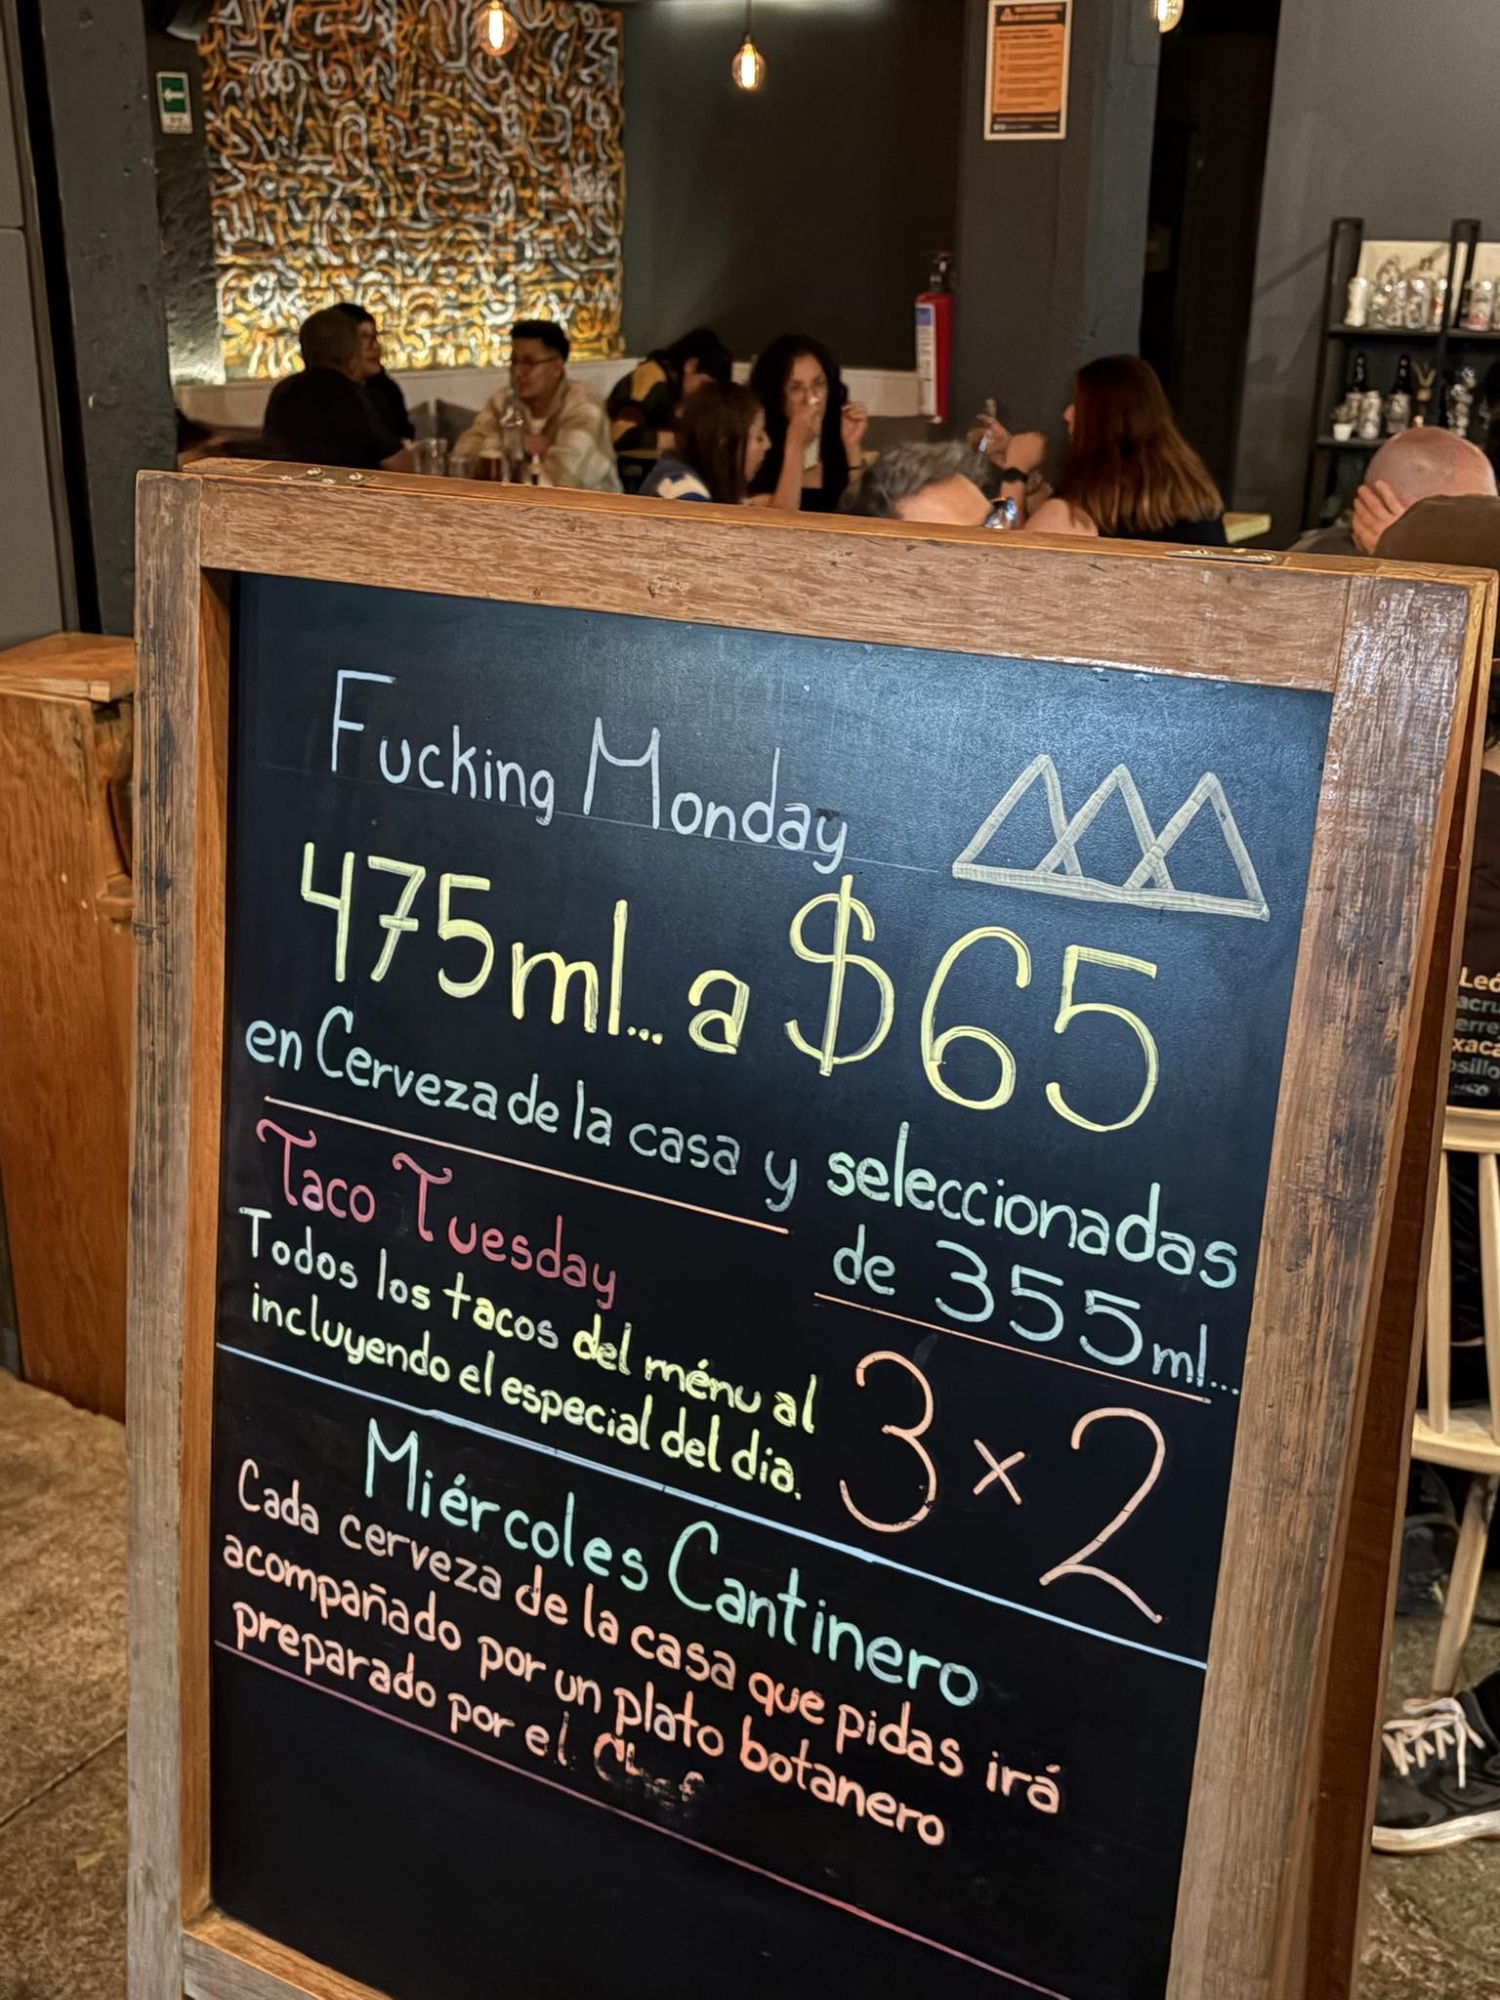 Fucking Monday
475ml... a $65
en Cerveza de la casa y seleccionadas
de 355ml...
Taco Tuesday
Todos los tacos del ménu al
incluyendo el especial del dia.
3x2
Miércoles Cantinero
Cada cerveza de la casa que pidas irá
acompañado por un plato botanero
preparado por el Chef